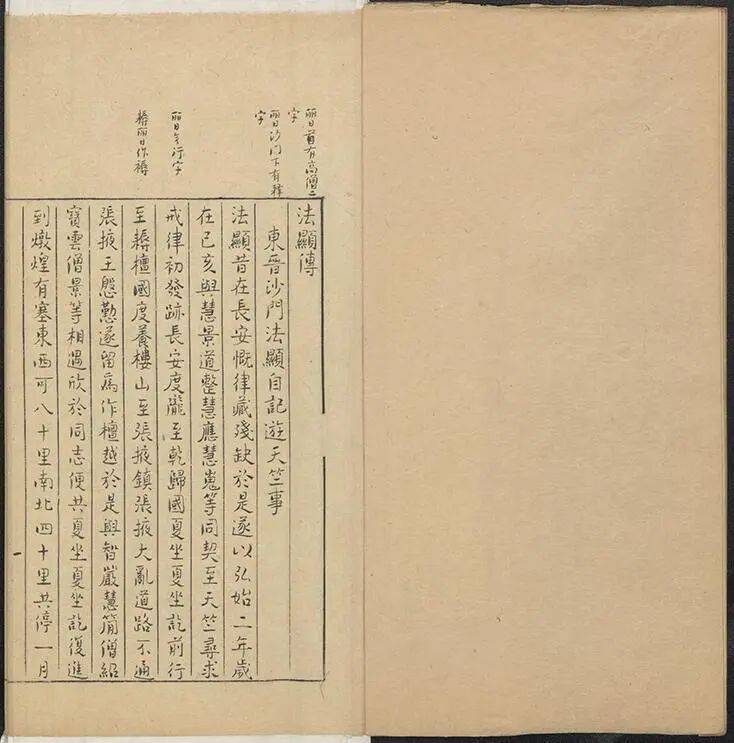 丽日首有高僧二
字
丽日沙门下有释
字
丽日无行字
耨丽日作褥
法顯傳
東晉沙門法顯自記遊天竺事
法顯昔在長安慨律藏殘缺於是遂以弘始二年歲
在己亥與慧景道整慧應慧嵬等同契至天竺尋求
戒律初發跡長安度隴至乾歸國夏坐夏坐訖前行
至耨檀國度養樓山至張掖鎮張掖大亂道路不通
張掖王慇懃遂留為作檀越於是與智嚴慧簡僧紹
寳雲僧景等相遇欣於同志便共夏坐夏坐訖復進
到燉煌有塞東西可八十里南北四十里共停一月